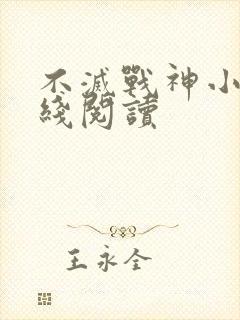 不滅戰神小
綫閱讀
王永全